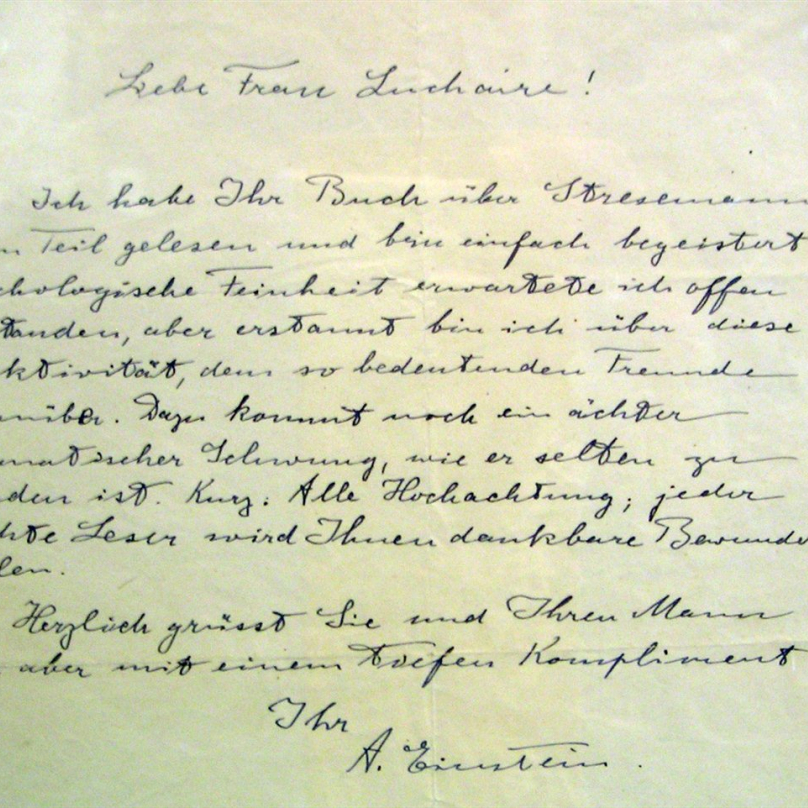 Liebe Frau Luchaire!
Ich habe Ihr Buch über Stresemann
Teil gelesen und bin einfach begeistert
chologische Feinheit erwartete ich offen
tanden, aber erstaunt bin ich über diese
ktivität, dem so bedeutenden Freunde
nüber. Dazu kommt noch ein ächter
matischer Schwung, wie er selten zu
den ist. Kurz: Alle Hochachtung; jeder
chte Leser wird Ihnen dankbare Bewunde
len.
Herzlich grüsst Sie und Ihren Mann
aber mit einem tiefen Kompliment
Ihr
A. Einstein.